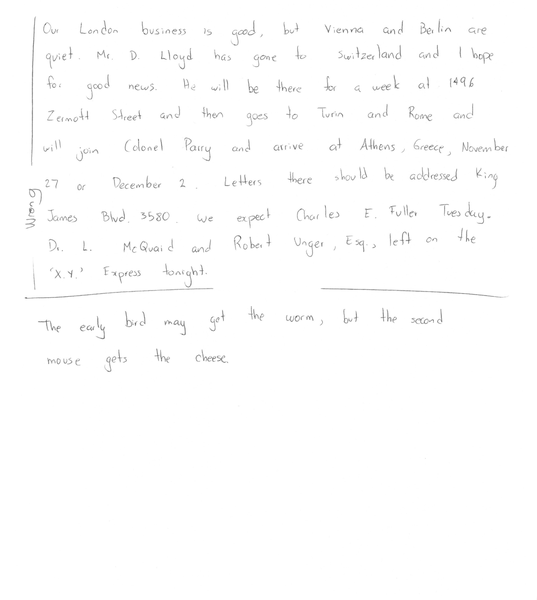 Our London business is good, but Vienna and Berlin are
quiet. Mr. D. Lloyd has gone to Switzerland and I hope
for good news. He will be there for a week at 1496
Zermott Street and then goes to Turin and Rome and
will join Colonel Parry and arrive at Athens, Greece, November
27 or December 2. Letters there should be addressed King
James Blvd. 3580. We expect Charles E. Fuller Tuesday.
Dr. L. McQuaid and Robert Unger, Esq., left on the
"X.Y." Express tonight.
Wrong
The early bird may get the worm, but the second
mouse gets the cheese.